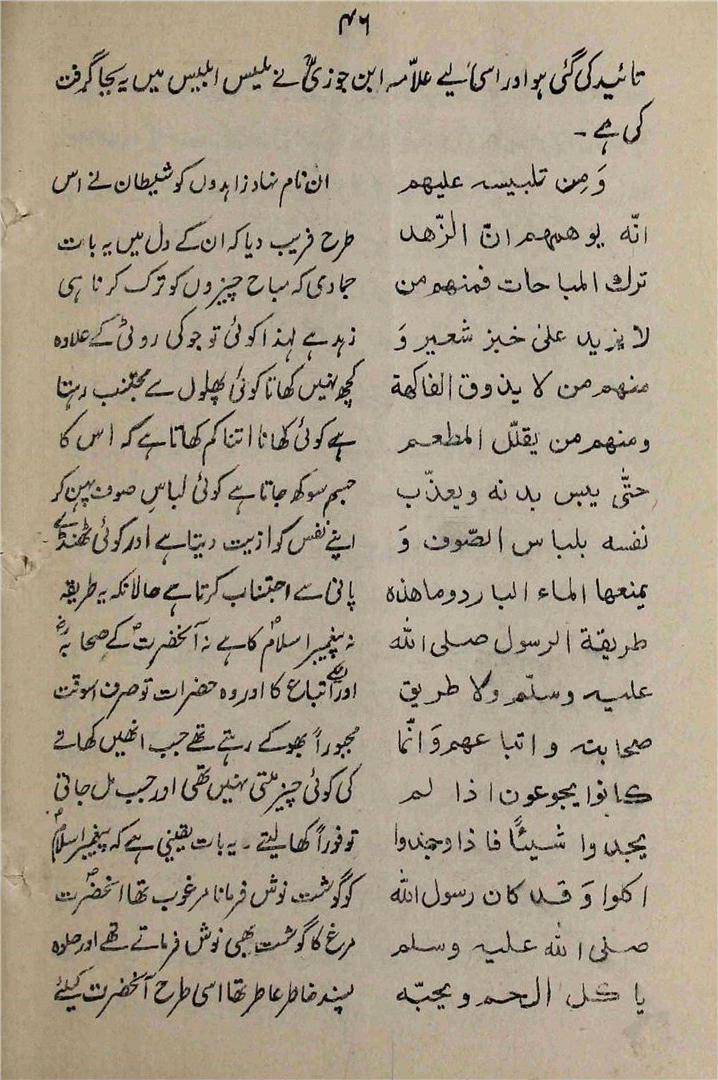 ۴۶
تائید کی گئی ہو اور اسی لیے علامہ ابن جوزیؒ نے تلبیس ابلیس میں یہ بجا گرفت
کی ہے ۔
وَمِن تلبیسہ علیھم
انّہ یوھمھم انّ الزّھد
ترك المباحات فمنھم من
لا یزید علیٰ خبز شعیر وَ
منھم من لا یذوق الفاکھۃ
ومنھم من یقلّل المطعم
حتّٰی ییبس بدنہ ویعذّب
نفسہ بلباس الصّوف وَ
یمنعھا الماء البارد وماھٰذہ
طریقۃ الرسول صلی اللہ
علیہ وسلّم ولا طریق
صحابتہ و اتباعھم وَانّما
کانوا یجوعون اذا لم
یجدوا شیئًا فاذا وجدوا
اکلوا وَقد کان رسول اللہ
صلی اللہ علیہ وسلم
یاکل الحم ویحبّہ
ان نام نہاد زاہدوں کو شیطان نے اس
طرح فریب دیا کہ ان کے دل میں یہ بات
جمادی کہ مباح چیزوں کو ترک کرنا ہی
زہد ہے لہٰذا کوئی تو جو کی روٹی کے علاوہ
کچھ نہیں کھاتا کوئی پھلوں سے مجتنب رہتا
ہے کوئی کھانا اتنا کم کھاتا ہے کہ اس کا
جسم سوکھ جاتا ہے کوئی لباسِ صوف پہن کر
اپنے نفس کو اذیت دیتا ہے اور کوئی ٹھنڈے
پانی سے اجتناب کرتا ہے حالانکہ یہ طریقہ
نہ پیغمبر اسلامؐ کا ہے نہ آنحضرتؐ کے صحابہؓ
اور انکے اتباع کا اور وہ حضرات تو صرف اسوقت
مجبوراً بھوکے رہتے تھے جب انھیں کھانے
کی کوئی چیز ملتی نہیں تھی اور جب مل جاتی
تو فوراً کھا لیتے ۔ یہ بات یقینی ہے کہ پیغمبر اسلامؐ
کو گوشت نوش فرمانا مرغوب تھا آنحضرتؐ
مرغ کا گوشت بھی نوش فرماتے تھے اور حلوہ
پسند خاطر عاطر تھا اسی طرح آنحضرت کیلئے